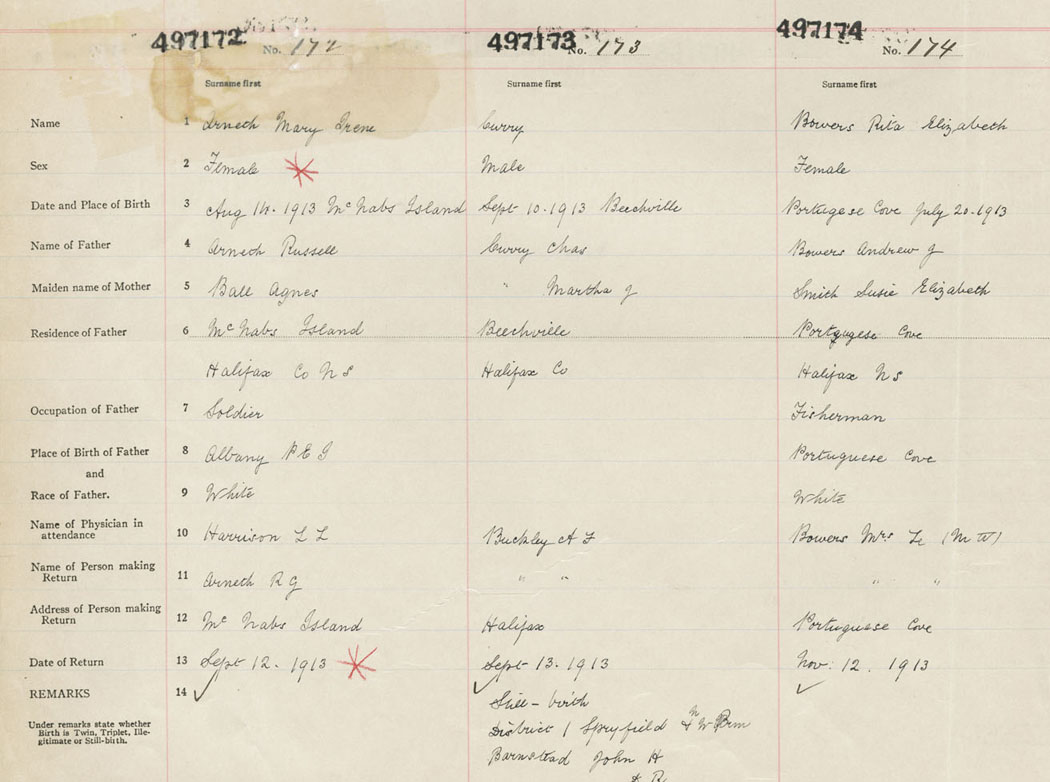 497172 No. 172 497173 No. 173 497174 No. 174
Surname first Surname first Surname first
Name 1 Arneth Mary Irene Curry Bowers Rita Elizabeth
Sex 2 Female Male Female
Date and Place of Birth 3 Aug 14. 1913 McNabs Island Sept 10. 1913 Beechville Portugese Cove July 20-1913
Name of Father 4 Arneth Russell Curry Chas Bowers Andrew J
Maiden name of Mother 5 Ball Agnes " Martha J Smith Susie Elizabeth
Residence of Father 6 McNabs Island Beechville Portugese Cove
Halifax Co N S Halifax Co Halifax N S
Occupation of Father 7 Soldier Fisherman
Place of Birth of Father 8 Albany P E I Portuguese Cove
and
Race of Father. 9 White White
Name of Physician in
attendance 10 Harrison L L Buckley A F Bowers Mrs (M W)
Name of Person making
Return 11 Arneth R G " " " "
Address of Person making
Return 12 McNabs Island Halifax Portuguese Cove
Date of Return 13 Sept 12. 1913 Sept 13. 1913 Nov. 12. 1913
REMARKS 14 Still-birth
Under remarks state whether
Birth is Twin, Triplet, Ille-
gitimate or Still-birth.
District 1 Spryfield
Barnstead John H